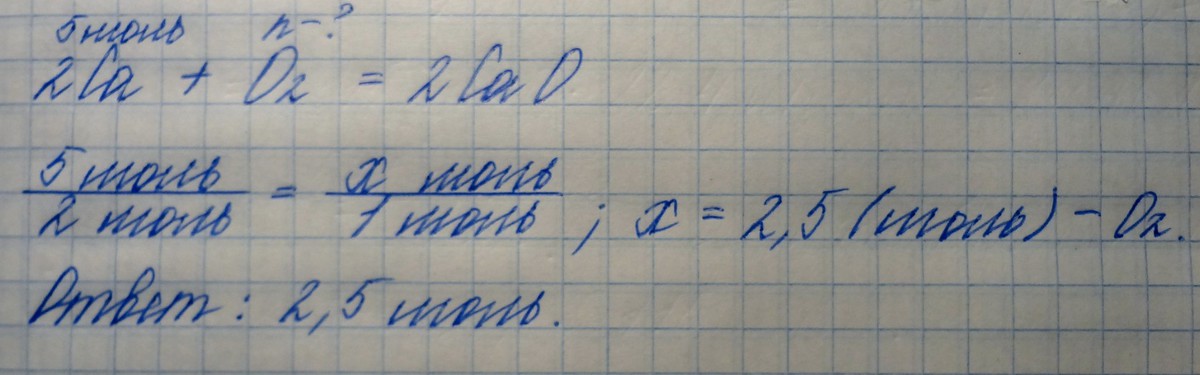 5 моль n - ?
2Ca + O2 = 2CaO
5 моль / 2 моль = x моль / 1 моль ; x = 2,5 (моль) - O2.
Ответ: 2,5 моль.